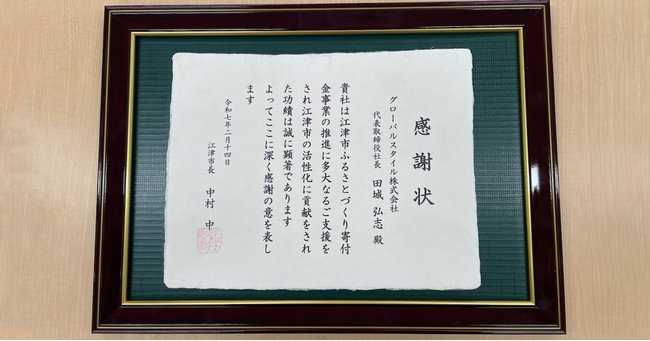 感謝状
グローバルスタイル株式会社
代表取締役社長 田城 弘志 殿
貴社は江津市ふるさとづくり寄付
金事業の推進に多大なるご支援を
され江津市の活性化に貢献をされ
た功績は誠に顕著であります
よってここに深く感謝の意を表し
ます
令和七年二月十四日
江津市長 中村 中